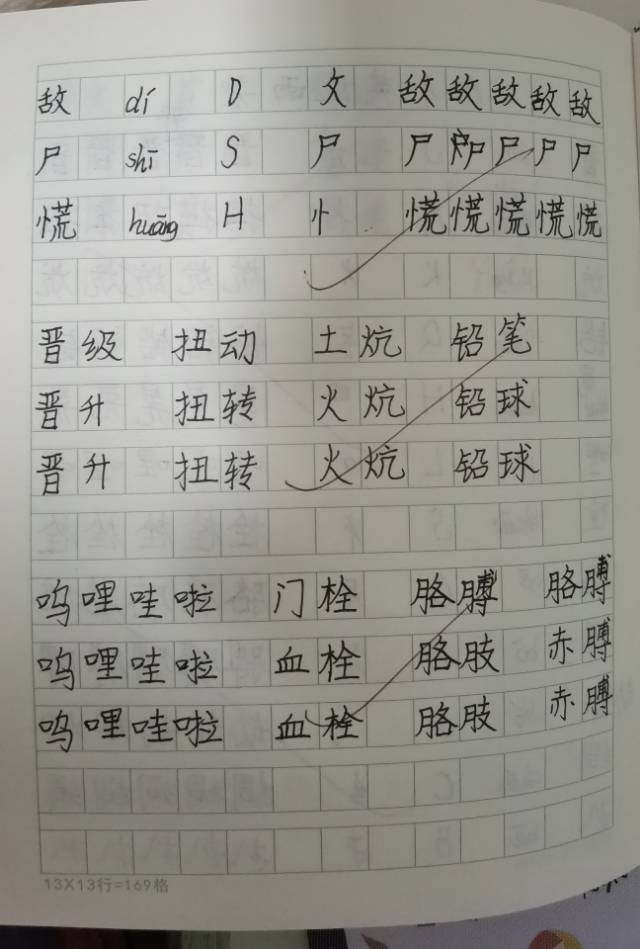 敌 dí D 攵 敌 敌 敌 敌 敌
尸 shī S 尸 尸 尸 尸 尸 尸
慌 huāng H 忄 慌 慌 慌 慌 慌
晋级 扭动 土炕 铅笔
晋升 扭转 火炕 铅球
晋升 扭转 火炕 铅球
呜哩哇啦 门栓 胳膊 胳膊
呜哩哇啦 血栓 胳肢 赤膊
呜哩哇啦 血栓 胳肢 赤膊
13X13行=169格